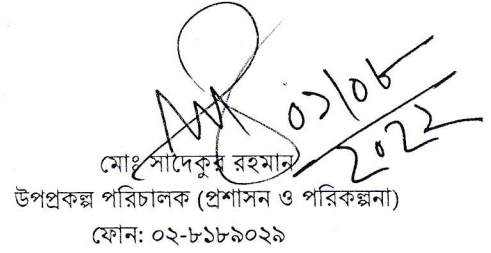 ০১/০৮
২০২২
মোঃ সাদেকুর রহমান
উপপ্রকল্প পরিচালক (প্রশাসন ও পরিকল্পনা)
ফোন: ০২-৮১৮৯০২৯